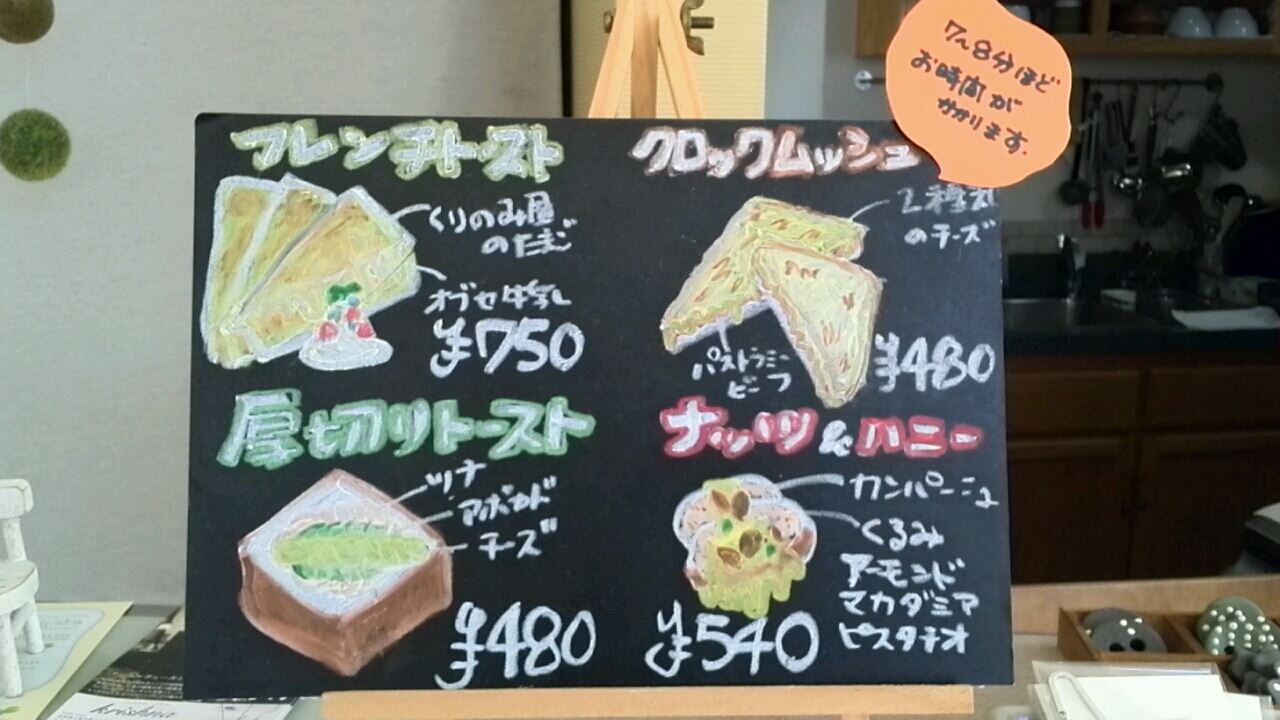 7〜8分ほど
お時間が
かかります.
フレンチトースト
くりのみ園
のたまご
オブセ牛乳
¥750
クロックムッシュ
2種類
のチーズ
パストラミー
ビーフ
¥480
厚切りトースト
ツナ
アボカド
チーズ
¥480
ナッツ&ハニー
カンパーニュ
くるみ
アーモンド
マカダミア
ピスタチオ
¥540
krishna